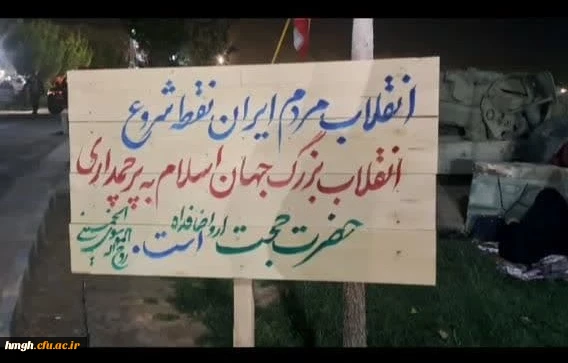 انقلاب مردم ایران نقطه شروع
انقلاب بزرگ جهان اسلام به پرچمداری
حضرت حجت ارواحنا فداه است.
روح الله الموسوی الخمینی
hmgh.cfu.ac.ir